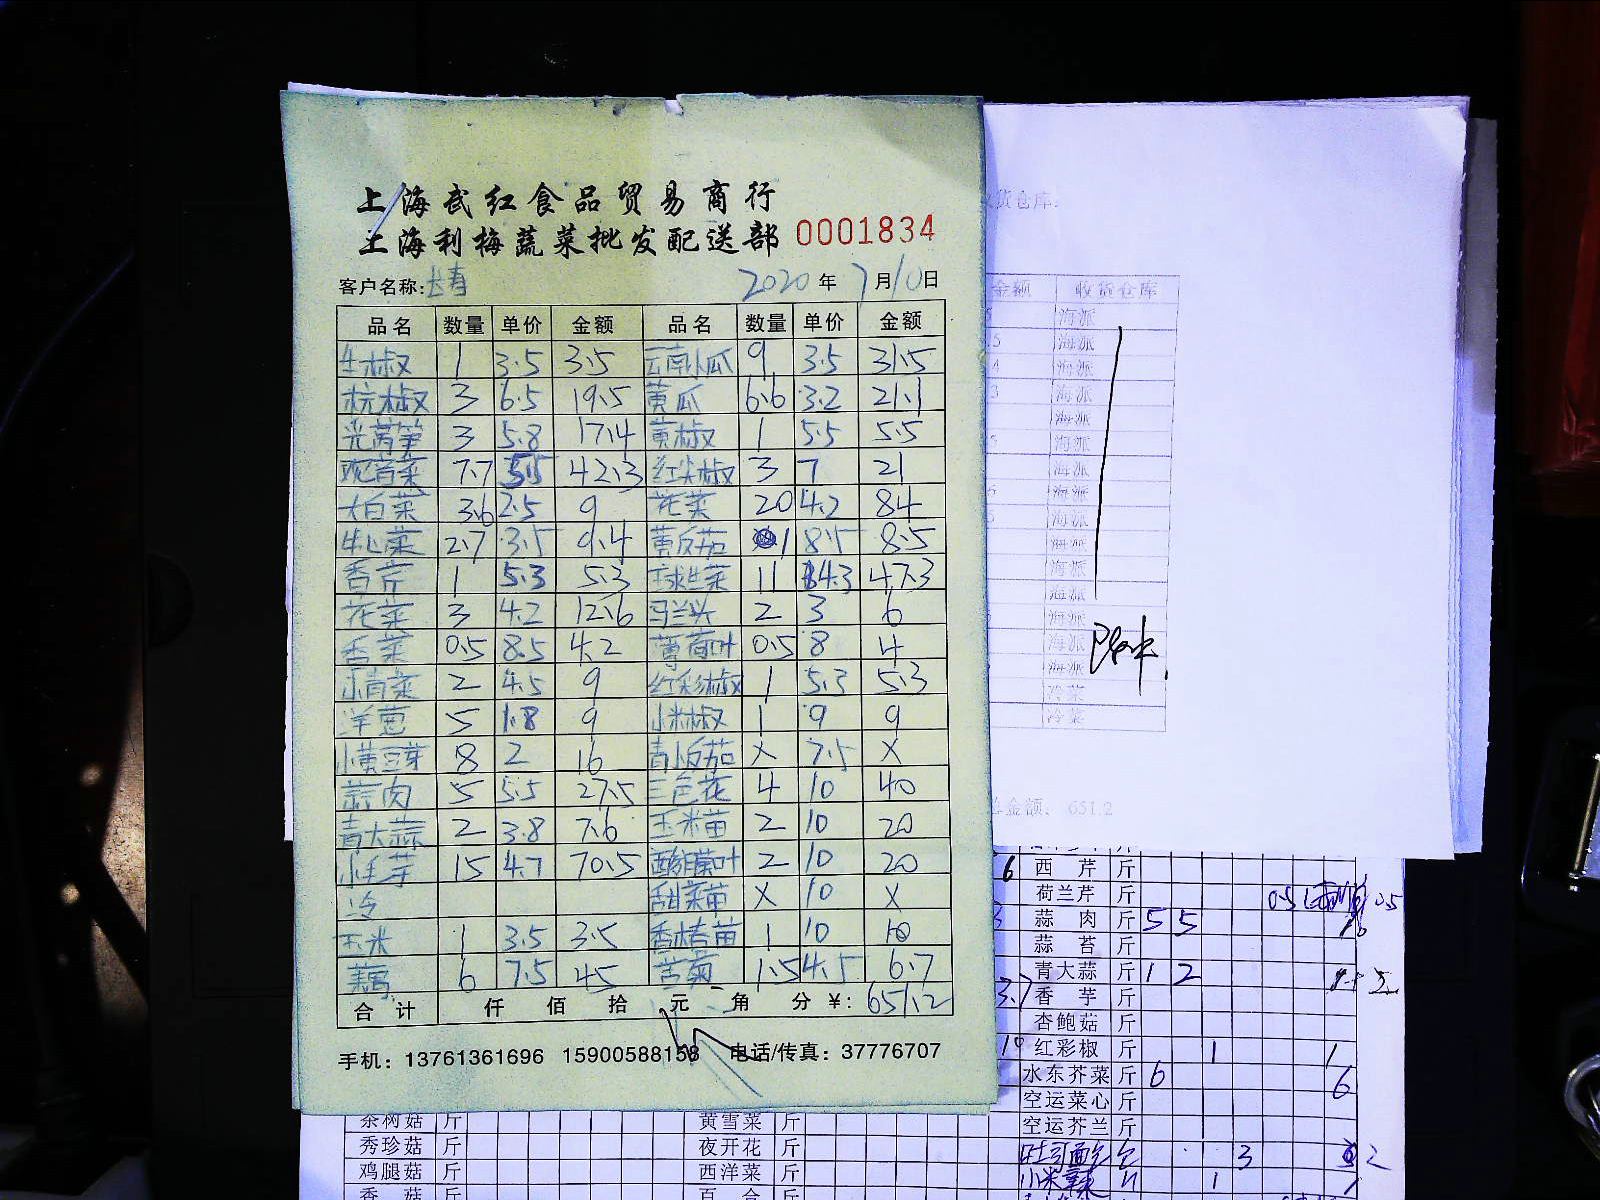 上海武红食品贸易商行
上海利梅蔬菜批发配送部 0001834
客户名称: 长寿 2020年7月10日
品名 数量 单价 金额 品名 数量 单价 金额
牛椒 1 3.5 3.5 云南小瓜 9 3.5 31.5
杭椒 3 6.5 19.5 黄瓜 6.6 3.2 21.1
光莴笋 3 5.8 17.4 黄椒 1 5.5 5.5
7.7 5.5 42.3 红尖椒 3 7 21
大白菜 3.6 2.5 9 花菜 20 4.2 84
牛心菜 2.7 3.5 9.4 黄反茄 1 8.5 8.5
香芹 1 5.3 5.3 球生菜 11 4.3 47.3
花菜 3 4.2 12.6 马兰头 2 3 6
香菜 0.5 8.5 4.2 薄荷叶 0.5 8 4
小青菜 2 4.5 9 红彩椒 1 5.3 5.3
洋葱 5 1.8 9 小米椒 1 9 9
小黄豆芽 8 2 16 X 7.5 X
蒜肉 5 5.5 27.5 三色花 4 10 40
青大蒜 2 3.8 7.6 玉米苗 2 10 20
小毛芋 15 4.7 70.5 叶 2 10 20
冷 甜菜苗 X 10 X
玉米 1 3.5 3.5 香椿苗 1 10 10
藕 6 7.5 45 苦菊 1.5 4.5 6.7
合计 仟 佰 拾 元 角 分 ¥: 651.2
手机: 13761361696 15900588158 电话/传真: 37776707
货仓库:
金额 收货仓库
海派
5 海派
4 海派
3 海派
海派
海派
海派
海派
海派
海派
海派
海派
海派
海派
海派
冷菜
冷菜
总金额: 651.2
6 西芹 斤
荷兰芹 斤 0.5 0.5
蒜肉 斤 5 5
蒜苔 斤
青大蒜 斤 1 2
3.7 香芋 斤
杏鲍菇 斤
红彩椒 斤 1 1
水东芥菜 斤 6 6
空运菜心 斤
空运芥兰 斤
3 2
小米 1
茶树菇 斤 黄雪菜 斤
秀珍菇 斤 夜开花 斤
鸡腿菇 斤 西洋菜 斤
香菇 斤 百合 斤